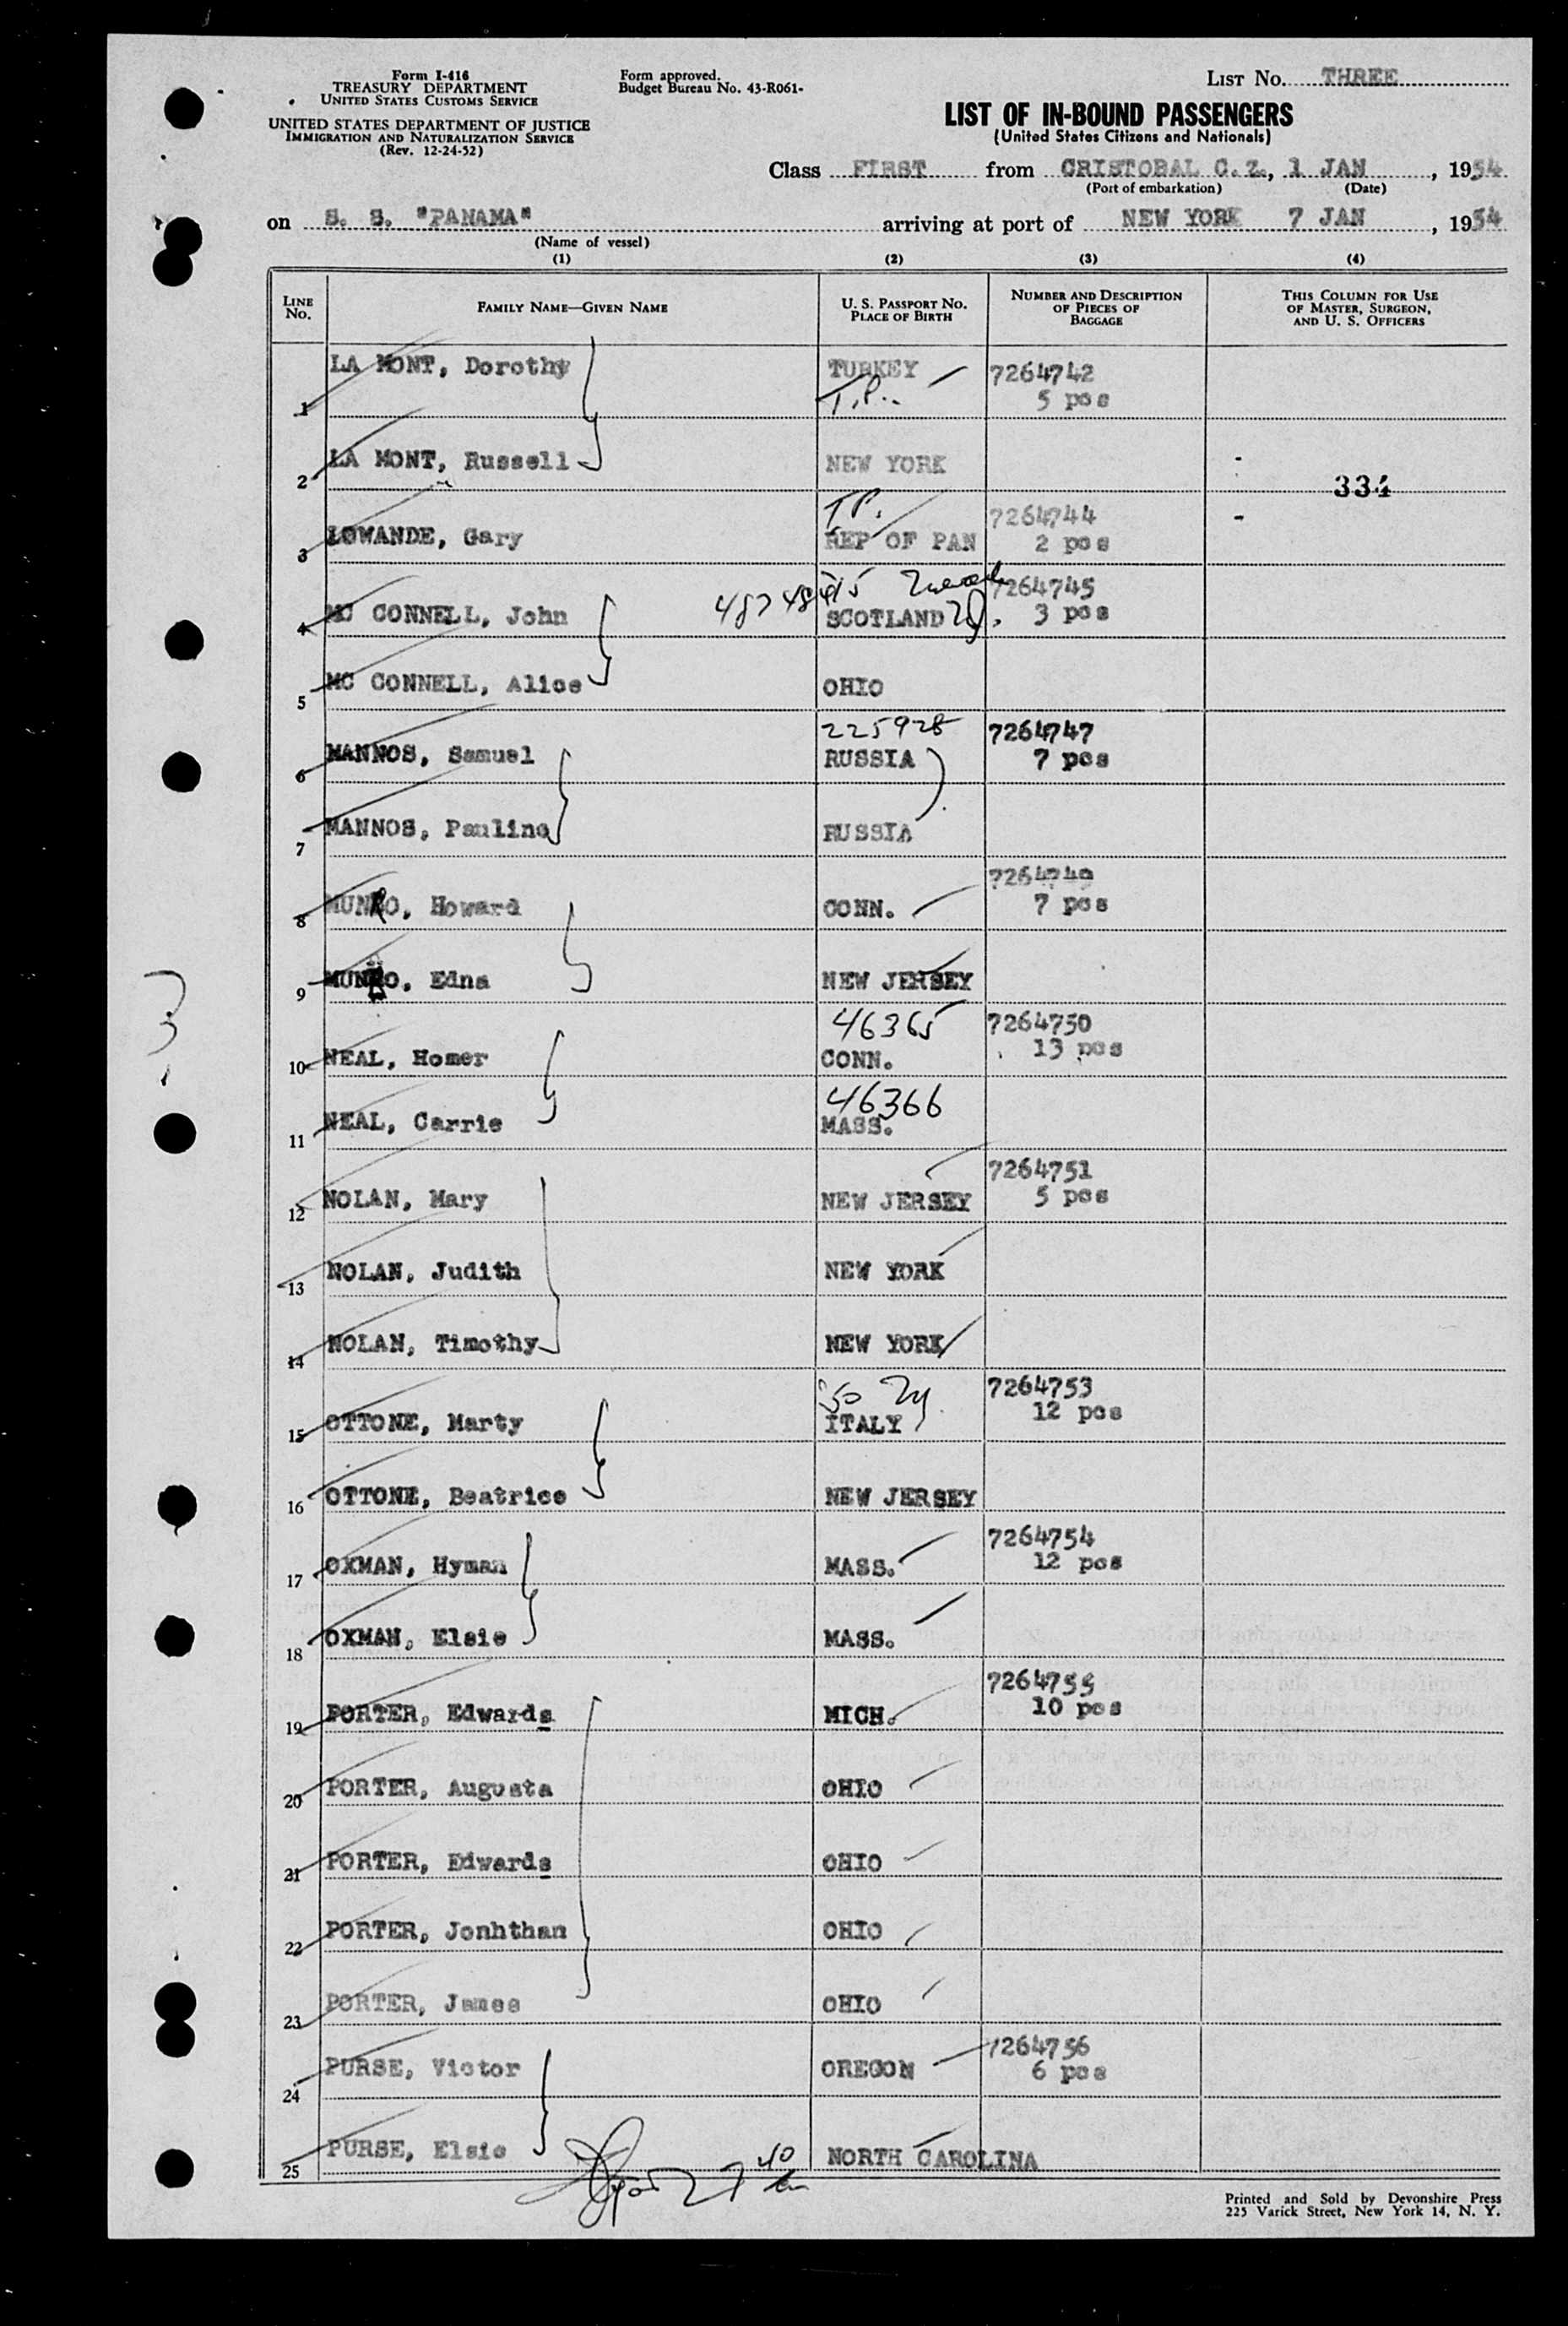 Form I-416
TREASURY DEPARTMENT
UNITED STATES CUSTOMS SERVICE
UNITED STATES DEPARTMENT OF JUSTICE
IMMIGRATION AND NATURALIZATION SERVICE
(Rev. 12-24-52)
Form approved.
Budget Bureau No. 43-R061-
LIST No. THREE
LIST OF IN-BOUND PASSENGERS
(United States Citizens and Nationals)
Class FIRST from CRISTOBAL C.Z., 1 JAN, 1954
(Port of embarkation) (Date)
on S. S. "PANAMA" arriving at port of NEW YORK 7 JAN, 1954
(Name of vessel)
(1) (2) (3) (4)
LINE No.
FAMILY NAME—GIVEN NAME
U. S. PASSPORT No. PLACE OF BIRTH
NUMBER AND DESCRIPTION OF PIECES OF BAGGAGE
THIS COLUMN FOR USE OF MASTER, SURGEON, AND U. S. OFFICERS
1 LA MONT, Dorothy TURKEY 7264742
T.P. 5 pcs
2 LA MONT, Russell NEW YORK
334
T.P. 7264744
3 LOWANDE, Gary REP OF PAN 2 pcs
7264745
4 MC CONNELL, John SCOTLAND 3 pcs
5 MC CONNELL, Alice OHIO
225928 7264747
6 MANNOS, Samuel RUSSIA 7 pcs
7 MANNOS, Pauline RUSSIA
7264749
8 MUNRO, Howard CONN. 7 pcs
9 MUNRO, Edna NEW JERSEY
46365 7264750
10 NEAL, Homer CONN. 13 pcs
46366
11 NEAL, Carrie MASS.
7264751
12 NOLAN, Mary NEW JERSEY 5 pcs
13 NOLAN, Judith NEW YORK
14 NOLAN, Timothy NEW YORK
7264753
15 OTTONE, Marty ITALY 12 pcs
16 OTTONE, Beatrice NEW JERSEY
7264754
17 OXMAN, Hyman MASS. 12 pcs
18 OXMAN, Elsie MASS.
7264755
19 PORTER, Edwards MICH. 10 pcs
20 PORTER, Augusta OHIO
21 PORTER, Edwards OHIO
22 PORTER, Jonhthan OHIO
23 PORTER, James OHIO
7264756
24 PURSE, Victor OREGON 6 pcs
25 PURSE, Elsie NORTH CAROLINA
3
Printed and Sold by Devonshire Press
225 Varick Street, New York 14, N. Y.